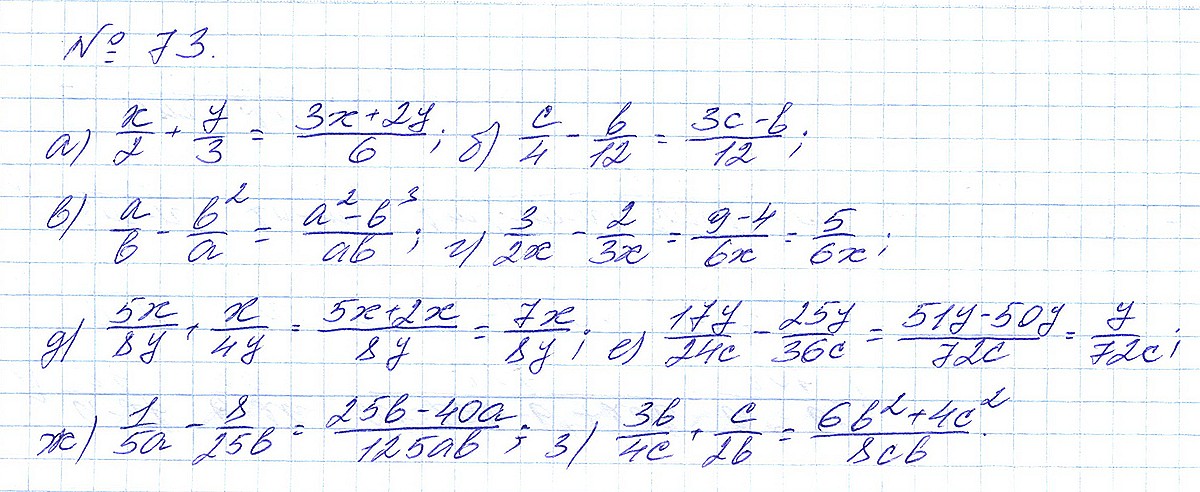 № 73.
а) x/2 + y/3 = (3x+2y)/6; б) c/4 - b/12 = (3c-b)/12;
в) a/b - b²/a = (a²-b³)/ab; г) 3/2x - 2/3x = (9-4)/6x = 5/6x;
д) 5x/8y + x/4y = (5x+2x)/8y = 7x/8y; е) 17y/24c - 25y/36c = (51y-50y)/72c = y/72c;
ж) 1/5a - 8/25b = (25b-40a)/125ab; з) 3b/4c + c/2b = (6b²+4c²)/8cb.